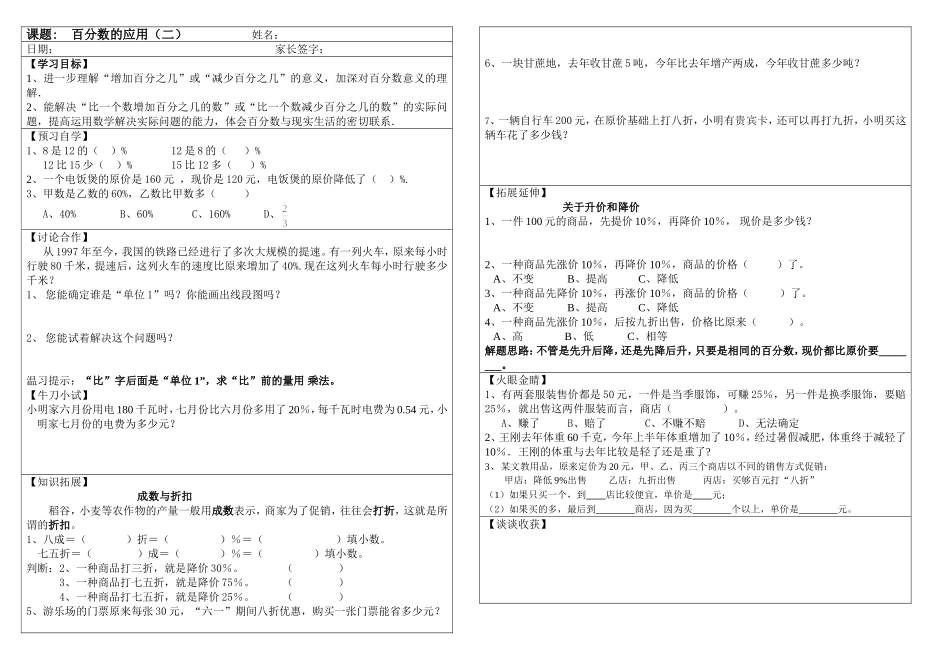 课题：  百分数的应用（二）          姓名：
日期：                              家长签字：
【学习目标】
1、进一步理解“增加百分之几”或“减少百分之几”的意义，加深对百分数意义的理
解．
2、能解决“比一个数增加百分之几的数”或“比一个数减少百分之几的数”的实际问
题，提高运用数学解决实际问题的能力，体会百分数与现实生活的密切联系．
【预习自学】
1、8 是 12 的（   ）%        12 是 8 的（   ）%
12 比 15 少（   ）%       15 比 12 多（   ）%
2、一个电饭煲的原价是 160 元 ，现价是 120 元，电饭煲的原价降低了（   ）%.
3、甲数是乙数的 60%，乙数比甲数多（      ）
A、40%        B、60%       C、160%      D、2/3
【讨论合作】
从 1997 年至今，我国的铁路已经进行了多次大规模的提速。有一列火车，原来每小时
行驶 80 千米，提速后，这列火车的速度比原来增加了 40%. 现在这列火车每小时行驶多少
千米？
1、 您能确定谁是“单位 1”吗？你能画出线段图吗？
2、 您能试着解决这个问题吗？
温习提示：“比”字后面是“单位 1”，求“比”前的量用 乘法。
【牛刀小试】
小明家六月份用电 180 千瓦时，七月份比六月份多用了 20％，每千瓦时电费为 0.54 元，小
明家七月份的电费为多少元？
【知识拓展】
成数与折扣
稻谷，小麦等农作物的产量一般用成数表示，商家为了促销，往往会打折，这就是所
谓的折扣。
1、八成＝（        ）折＝（        ）％＝（            ）填小数。
七五折＝（        ）成＝（        ）％＝（        ）填小数。
判断：2、一种商品打三折，就是降价 30％。      （        ）
3、一种商品打七五折，就是降价 75％。      （        ）
4、一种商品打七五折，就是降价 25％。      （        ）
5、游乐场的门票原来每张 30 元，“六一”期间八折优惠，购买一张门票能省多少元？
6、一块甘蔗地，去年收甘蔗 5 吨，今年比去年增产两成，今年收甘蔗多少吨？
7、一辆自行车 200 元，在原价基础上打八折，小明有贵宾卡，还可以再打九折，小明买这
辆车花了多少钱？
【拓展延伸】
关于升价和降价
1、一件 100 元的商品，先提价 10％，再降价 10％， 现价是多少钱？
2、一种商品先涨价 10％，再降价 10％，商品的价格（      ）了。
A、不变      B、提高      C、降低
3、一种商品先降价 10％，再涨价 10％，商品的价格（      ）了。
A、不变      B、提高      C、降低
4、一种商品先涨价 10％，后按九折出售，价格比原来（      ）。
A、高        B、低      C、相等
解题思路：不管是先升后降，还是先降后升，只要是相同的百分数，现价都比原价要_____
___。
【火眼金睛】
1、有两套服装售价都是 50 元，一件是当季服饰，可赚 25％，另一件是换季服饰，要赔
25％，就出售这两件服装而言，商店（        ）。
A、赚了     B、赔了     C、不赚不赔     D、无法确定
2、王刚去年体重 60 千克，今年上半年体重增加了 10％，经过暑假减肥，体重终于减轻了
10％．王刚的体重与去年比较是轻了还是重了？
3、某文教用品，原来定价为 20 元，甲、乙、丙三个商店以不同的销售方式促销：
甲店：降低 9%出售     乙店：九折出售     丙店：买够百元打“八折”
（1）如果只买一个，到____店比较便宜，单价是____元；
（2）如果买的多，最后到________商店，因为买________个以上，单价是________元。
【谈谈收获】